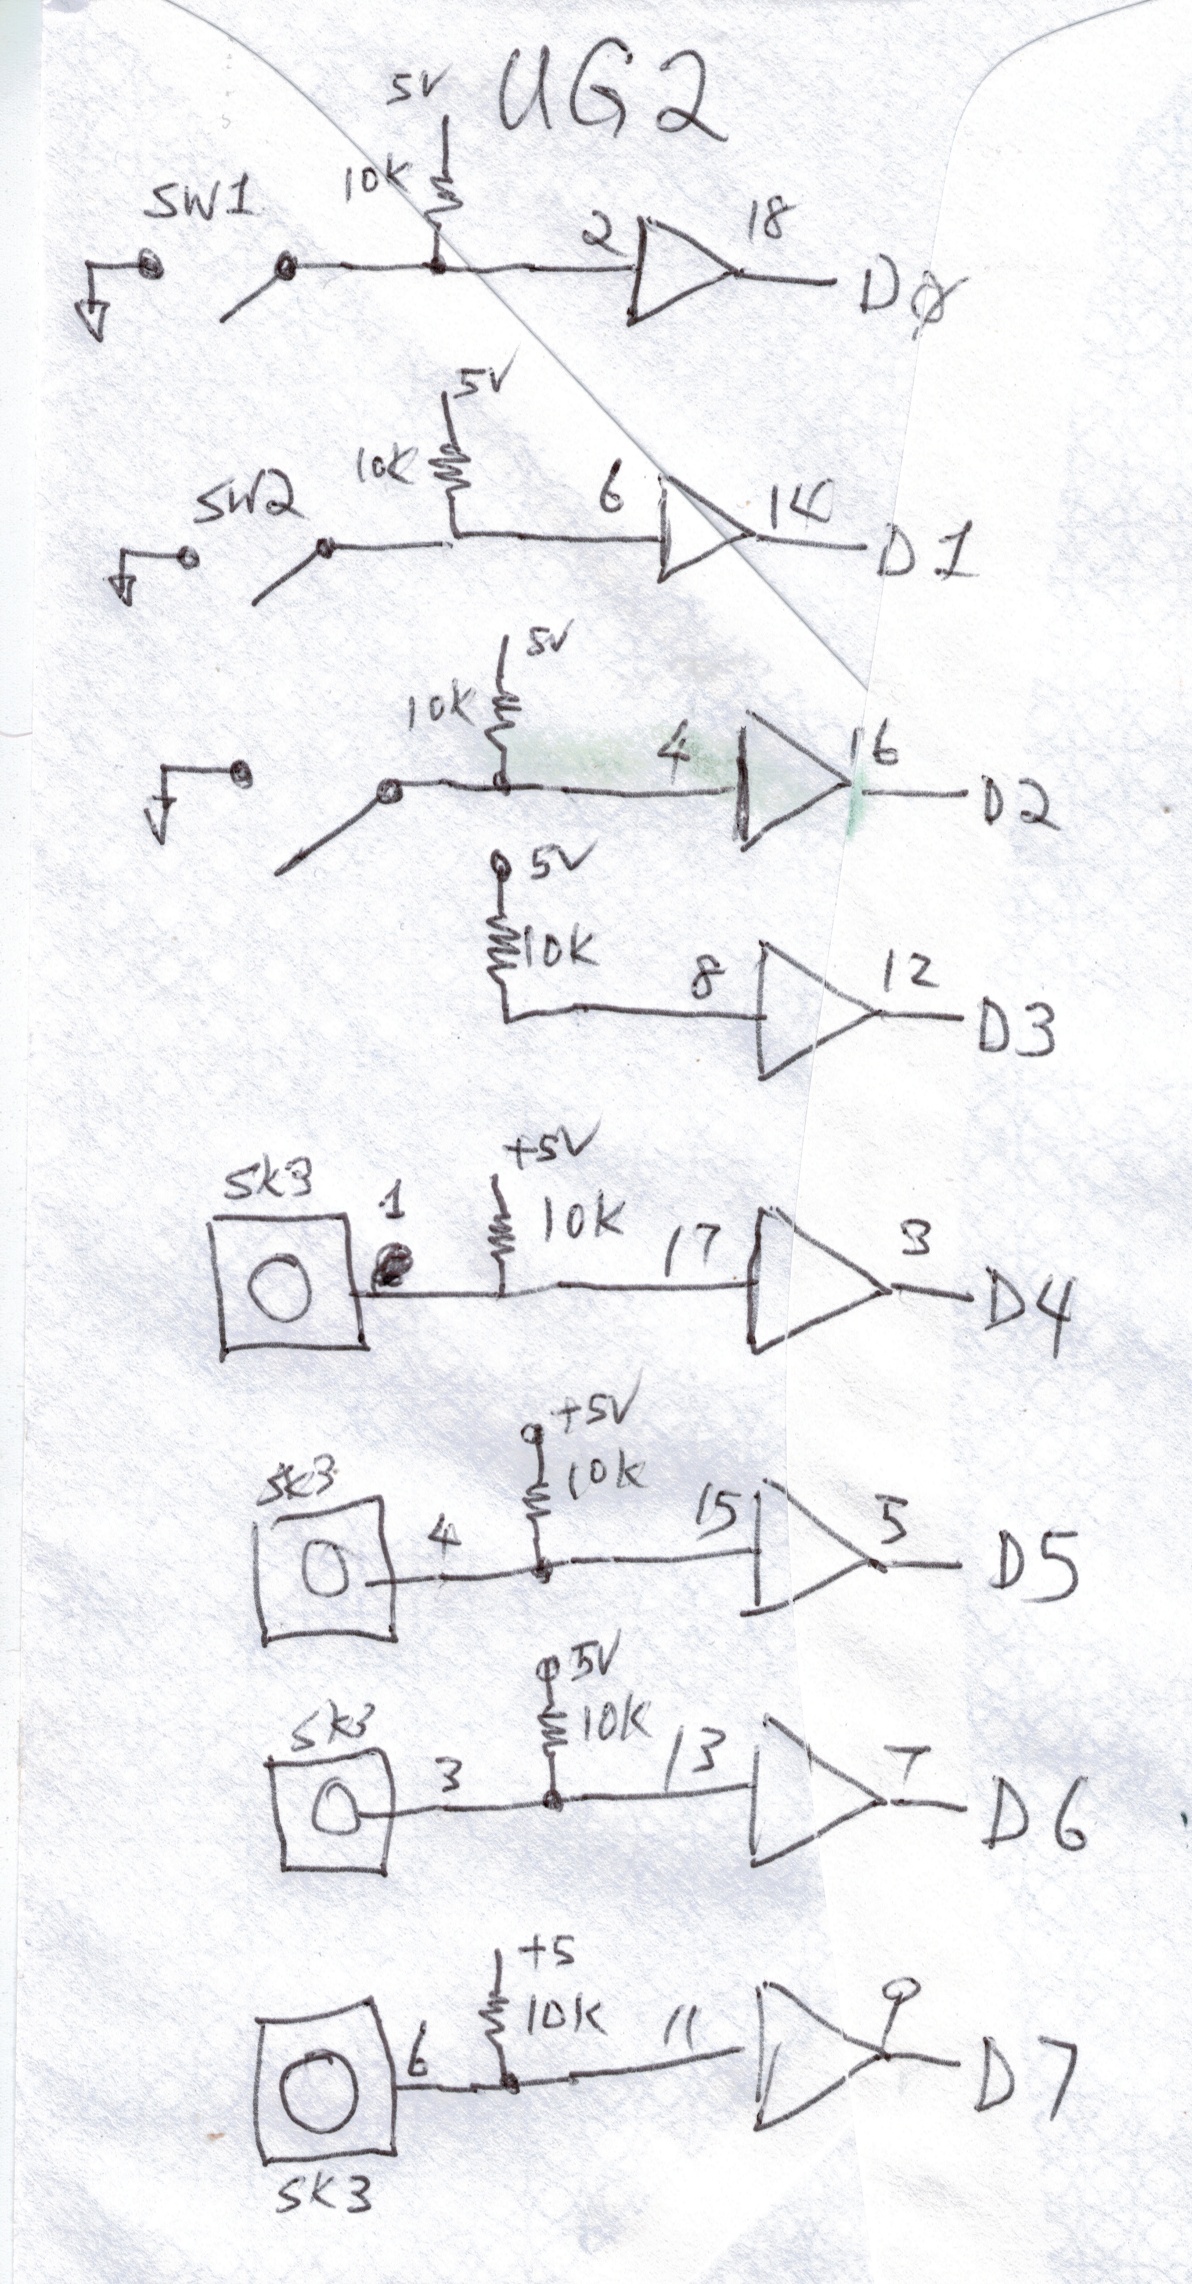 UG2
5V
10K
SW1
2
18
DØ
5V
10K
SW2
6
14
D1
5V
10K
4
16
D2
5V
10K
8
12
D3
+5V
SK3
1
10K
17
3
D4
+5V
SK3
10K
4
15
5
D5
5V
SK3
10K
3
13
7
D6
+5
10K
6
11
9
D7
SK3